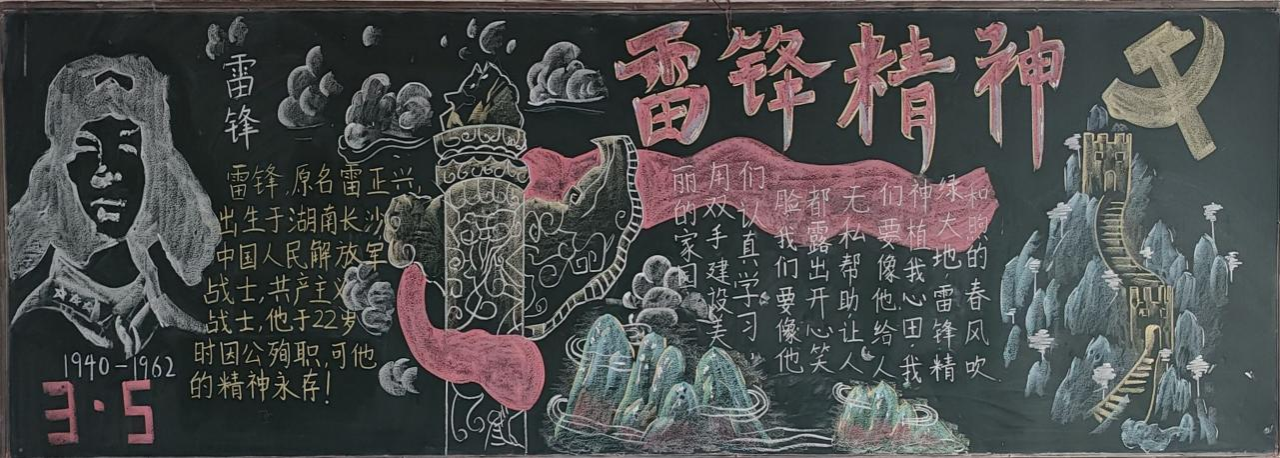 雷锋精神
雷锋
雷锋,原名雷正兴,
出生于湖南长沙
中国人民解放军
战士,共产主义
战士,他于22岁
时因公殉职,可他
的精神永存!
1940-1962
3·5
和煦的春风吹
绿大地,雷锋精
神植我心田,我
们要像他给人
无私帮助,让人
都露出开心笑
脸我们要像他
们认真学习,
用双手建设美
丽的家园